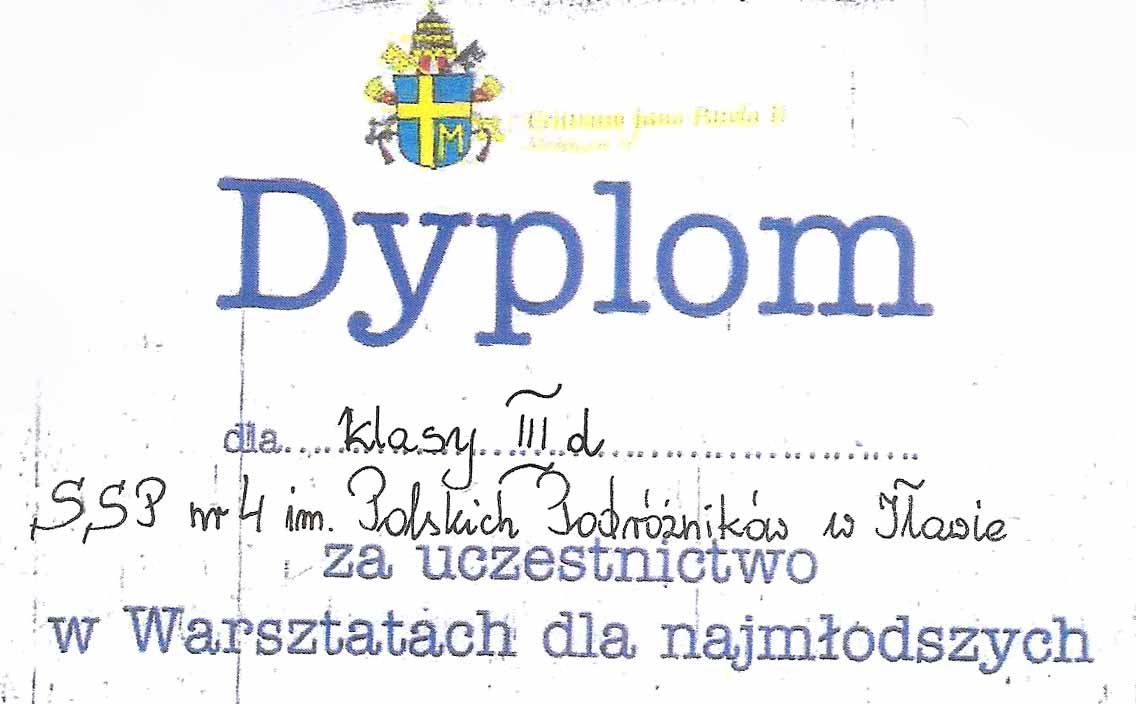 Centrum Jana Pawła II
Dyplom
dla....klasy III d....................
SSP nr 4 im. Polskich Podróżników w Iławie
za uczestnictwo
w Warsztatach dla najmłodszych